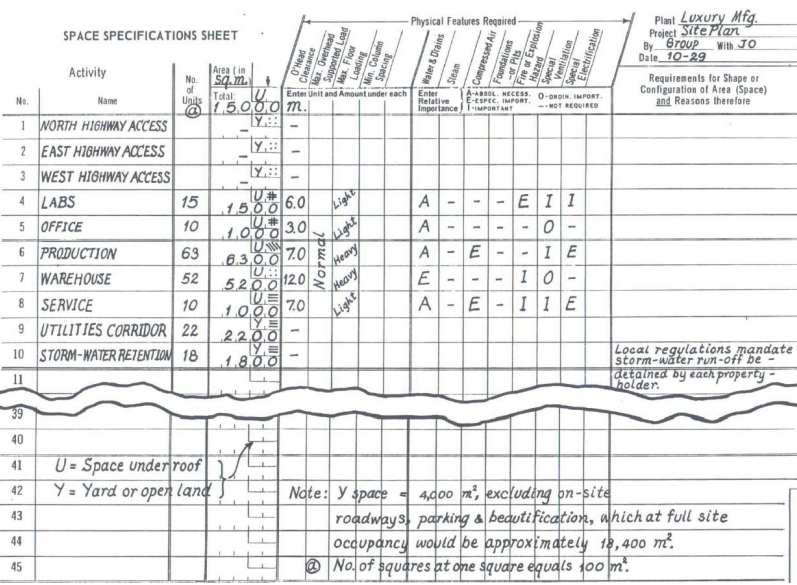 SPACE SPECIFICATIONS SHEET
Physical Features Required
Plant Luxury Mfg.
Project Site Plan
By Group With JO
Date 10-29
Activity
No. of Units @
Area (in Sq. m.)
O'Head Clearance
Max. Overhead Supported Load
Max. Floor Loading
Min. Column Spacing
Water & Drains
Steam
Compressed Air
Foundations or Pits
Fire or Explosion Hazard
Special Ventilation
Special Electrification
Requirements for Shape or
Configuration of Area (Space)
and Reasons therefore
No. Name
Total: U
15,000 m.
Enter Unit and Amount under each
Enter Relative Importance
A-ABSOL. NECESS. O-ORDIN. IMPORT.
E-ESPEC. IMPORT. –-NOT REQUIRED
I-IMPORTANT
1 NORTH HIGHWAY ACCESS – Y –
2 EAST HIGHWAY ACCESS – Y –
3 WEST HIGHWAY ACCESS – Y –
4 LABS 15 1,500 U # 6.0 Light A - - - E I I
5 OFFICE 10 1,000 U # 3.0 Light A - - - - O -
6 PRODUCTION 63 6,300 U 7.0 Heavy A - E - - I E
7 WAREHOUSE 52 5,200 U 12.0 Heavy E - - - I O -
Normal
8 SERVICE 10 1,000 U ≡ 7.0 Light A - E - I I E
9 UTILITIES CORRIDOR 22 2,200 Y ≡ –
10 STORM-WATER RETENTION 18 1,800 Y ≡ –
Local regulations mandate
storm-water run-off be -
detained by each property -
holder.
11
39
40
41 U = Space under roof
42 Y = Yard or open land
Note: Y space = 4,000 m², excluding on-site
43 roadways, parking & beautification, which at full site
44 occupancy would be approximately 18,400 m².
45 @ No. of squares at one square equals 100 m².